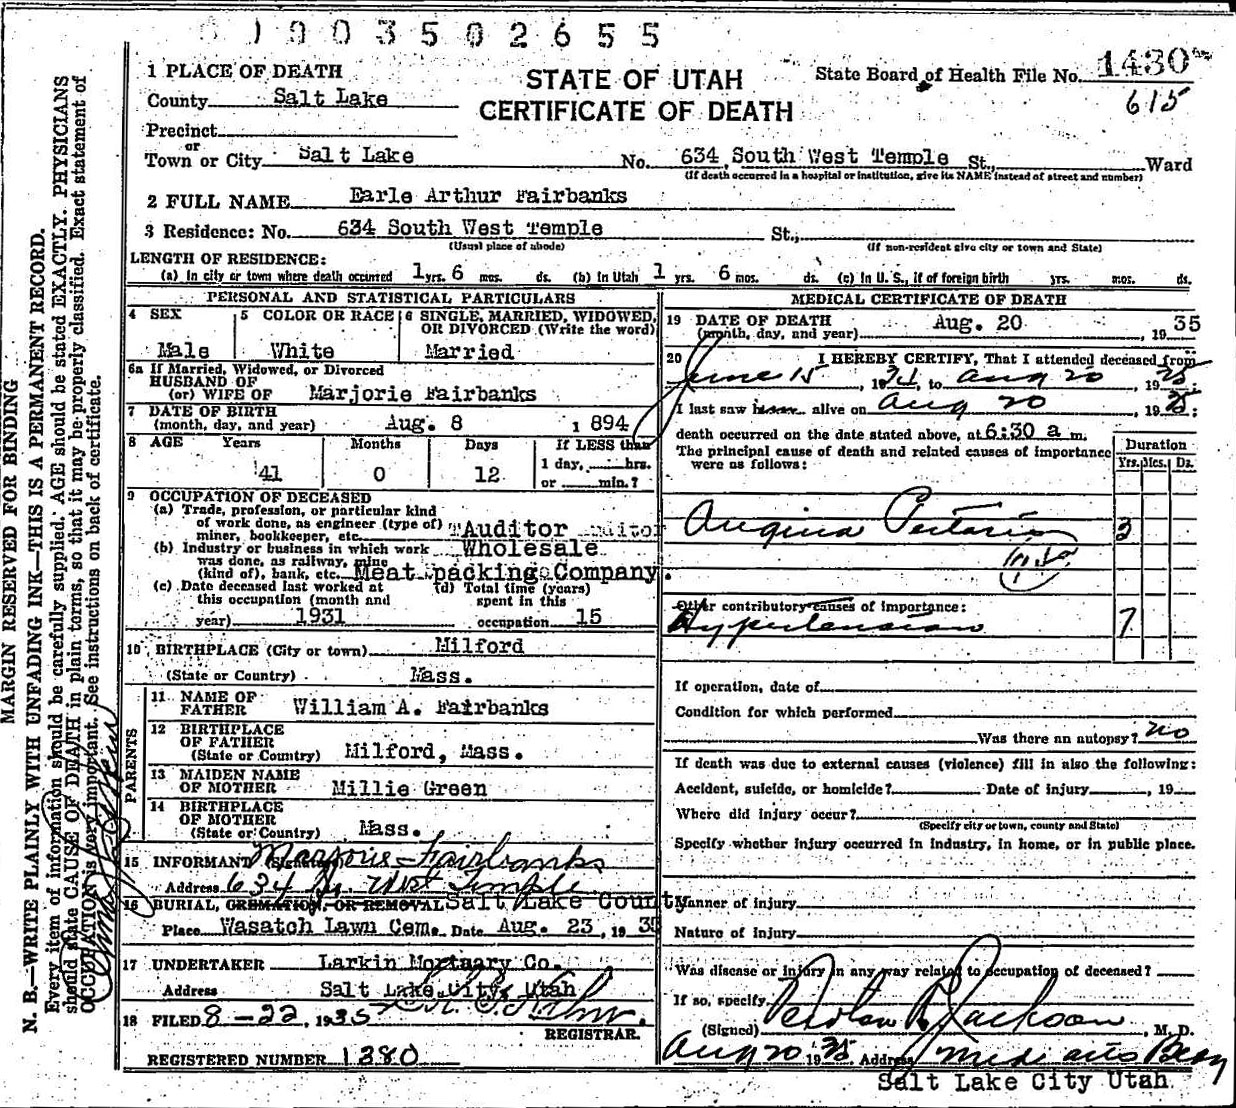 1 9 0 0 3 5 0 2 6 5 5
1 PLACE OF DEATH
STATE OF UTAH
CERTIFICATE OF DEATH
State Board of Health File No. 1430
615
County Salt Lake
Precinct
or
Town or City Salt Lake No. 634 South West Temple St., Ward
(If death occurred in a hospital or institution, give its NAME instead of street and number)
2 FULL NAME Earle Arthur Fairbanks
3 Residence: No. 634 South West Temple St.,
(Usual place of abode) (If non-resident give city or town and State)
LENGTH OF RESIDENCE:
(a) In city or town where death occurred 1 yrs. 6 mos. ds. (b) In Utah 1 yrs. 6 mos. ds. (c) In U. S., if of foreign birth yrs. mos. ds.
PERSONAL AND STATISTICAL PARTICULARS
4 SEX
Male
5 COLOR OR RACE
White
6 SINGLE, MARRIED, WIDOWED,
OR DIVORCED (Write the word)
Married
6a If Married, Widowed, or Divorced
HUSBAND OF
(or) WIFE OF Marjorie Fairbanks
7 DATE OF BIRTH
(month, day, and year) Aug. 8 1894
8 AGE Years Months Days If LESS than
1 day, hrs.
41 0 12 or min.?
9 OCCUPATION OF DECEASED
(a) Trade, profession, or particular kind
of work done, as engineer (type of)
miner, bookkeeper, etc. Auditor
(b) Industry or business in which work
was done, as railway, mine
(kind of), bank, etc. Wholesale
Meat packing Company.
(c) Date deceased last worked at
this occupation (month and
year) 1931
(d) Total time (years)
spent in this
occupation 15
10 BIRTHPLACE (City or town) Milford
(State or Country) Mass.
PARENTS
11 NAME OF
FATHER William A. Fairbanks
12 BIRTHPLACE
OF FATHER
(State or Country) Milford, Mass.
13 MAIDEN NAME
OF MOTHER Millie Green
14 BIRTHPLACE
OF MOTHER
(State or Country) Mass.
15 INFORMANT (Signature) Marjorie Fairbanks
Address 634 So. West Temple
16 BURIAL, CREMATION, OR REMOVAL Salt Lake County
Place Wasatch Lawn Cem. Date Aug. 23, 1935
17 UNDERTAKER Larkin Mortuary Co.
Address Salt Lake City, Utah
18 FILED 8-22, 1935
REGISTRAR.
REGISTERED NUMBER 1380
MEDICAL CERTIFICATE OF DEATH
19 DATE OF DEATH
(month, day, and year) Aug. 20 1935
20 I HEREBY CERTIFY, That I attended deceased from
June 15, 1934, to Aug 20, 1935;
I last saw him alive on Aug 20, 1935;
death occurred on the date stated above, at 6:30 a m.
The principal cause of death and related causes of importance
were as follows:
Duration
Yrs. Mos. Ds.
Angina Pectoris 3
Other contributory causes of importance:
Hypertension 7
If operation, date of
Condition for which performed
Was there an autopsy? no
If death was due to external causes (violence) fill in also the following:
Accident, suicide, or homicide? Date of injury , 19
Where did injury occur?
(Specify city or town, county and State)
Specify whether injury occurred in industry, in home, or in public place.
Manner of injury
Nature of injury
Was disease or injury in any way related to occupation of deceased?
If so, specify
(Signed) Jackson, M. D.
Aug 20 1935 Address Medical Arts Bldg
Salt Lake City Utah
MARGIN RESERVED FOR BINDING
N. B.—WRITE PLAINLY WITH UNFADING INK—THIS IS A PERMANENT RECORD.
Every item of information should be carefully supplied. AGE should be stated EXACTLY. PHYSICIANS
should state CAUSE OF DEATH in plain terms, so that it may be properly classified. Exact statement of
OCCUPATION is very important. See instructions on back of certificate.